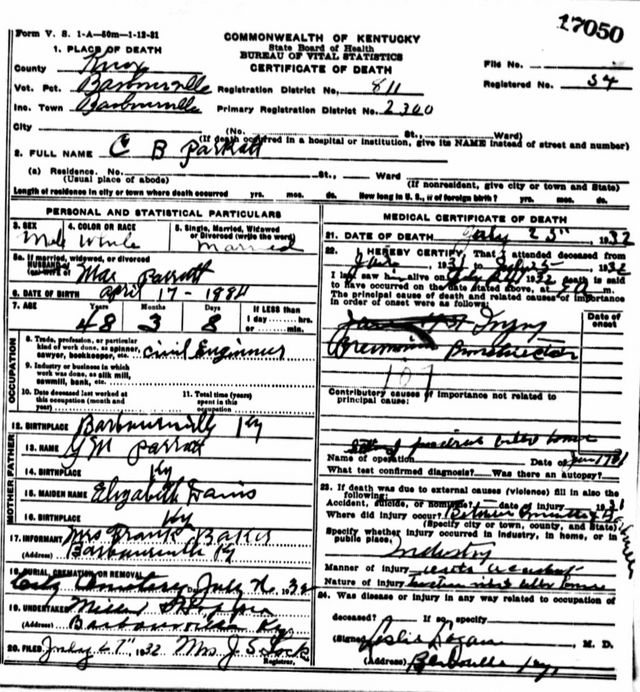 17050
Form V. S. 1-A—50m—1-12-31
COMMONWEALTH OF KENTUCKY
State Board of Health
BUREAU OF VITAL STATISTICS
CERTIFICATE OF DEATH
1. PLACE OF DEATH
County Knox
File No.
Vot. Pct. Barbourville Registration District No. 811
Registered No. 54
Inc. Town Barbourville Primary Registration District No. 2300
City (No. St., Ward)
(If death occurred in a hospital or institution, give its NAME instead of street and number)
2. FULL NAME C B Parrott
(a) Residence. No. St., Ward
(Usual place of abode) (If nonresident, give city or town and State)
Length of residence in city or town where death occurred yrs. mos. ds. How long in U. S., if of foreign birth? yrs. mos. ds.
PERSONAL AND STATISTICAL PARTICULARS
3. SEX 4. COLOR OR RACE 5. Single, Married, Widowed or Divorced (write the word)
Male White Married
5a. If married, widowed, or divorced
HUSBAND of
(or) WIFE of Mae Parrott
6. DATE OF BIRTH April 17-1884
7. AGE Years Months Days If LESS than
48 3 8 1 day hrs. or min.
OCCUPATION
8. Trade, profession, or particular kind of work done, as spinner, sawyer, bookkeeper, etc. Civil Engineer
9. Industry or business in which work was done, as silk mill, sawmill, bank, etc.
10. Date deceased last worked at this occupation (month and year)
11. Total time (years) spent in this occupation
12. BIRTHPLACE Barbourville Ky
FATHER
13. NAME Parrott
14. BIRTHPLACE Ky
MOTHER
15. MAIDEN NAME Elizabeth Davis
16. BIRTHPLACE Ky
17. INFORMANT Mrs Frank Baker
(Address) Barbourville Ky
18. BURIAL, CREMATION OR REMOVAL
City Cemetary July 26 1932
19. UNDERTAKER
Barbourville Ky
20. FILED 1932 Mrs J. S. Lock
Registrar.
MEDICAL CERTIFICATE OF DEATH
21. DATE OF DEATH July 25" 1932
22. I HEREBY CERTIFY, That I attended deceased from
1931 to 1932
I last saw h alive on 1932 death is said
to have occurred on the date stated above, at m.
The principal cause of death and related causes of importance in order of onset were as follows:
Date of onset
Injury
107
Contributory causes of importance not related to principal cause:
Name of operation Date of
What test confirmed diagnosis? Was there an autopsy?
23. If death was due to external causes (violence) fill in also the following:
Accident, suicide, or homicide? date of injury 1931
Where did injury occur?
(Specify city or town, county, and State)
Specify whether injury occurred in industry, in home, or in public place. Industry
Manner of injury auto accident
Nature of injury
24. Was disease or injury in any way related to occupation of deceased? If so, specify
(Signed) Leslie Logan M. D.
(Address) Barbourville Ky.